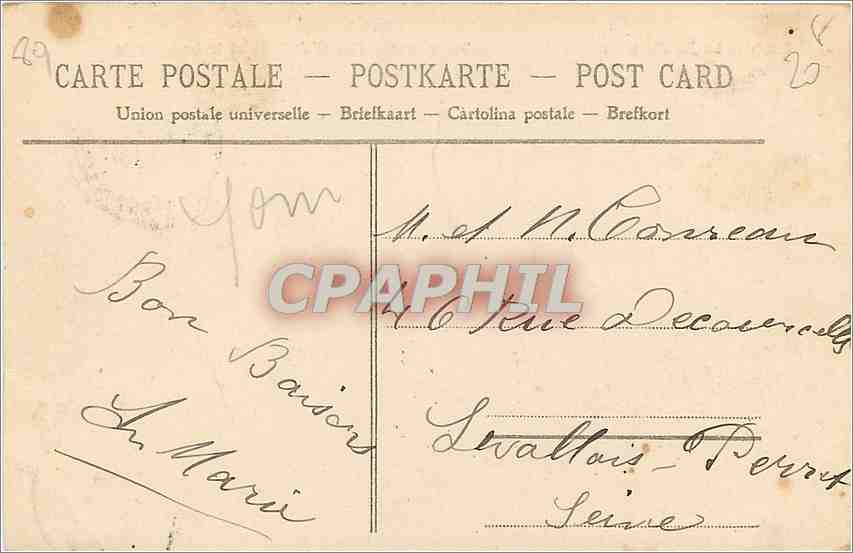 89
20
CARTE POSTALE — POSTKARTE — POST CARD
Union postale universelle — Briefkaart — Cartolina postale — Brefkort
Yom
Bon
Baisers
Marie
M. et
46 Rue
Levallois-Perret
Seine
CPAPHIL